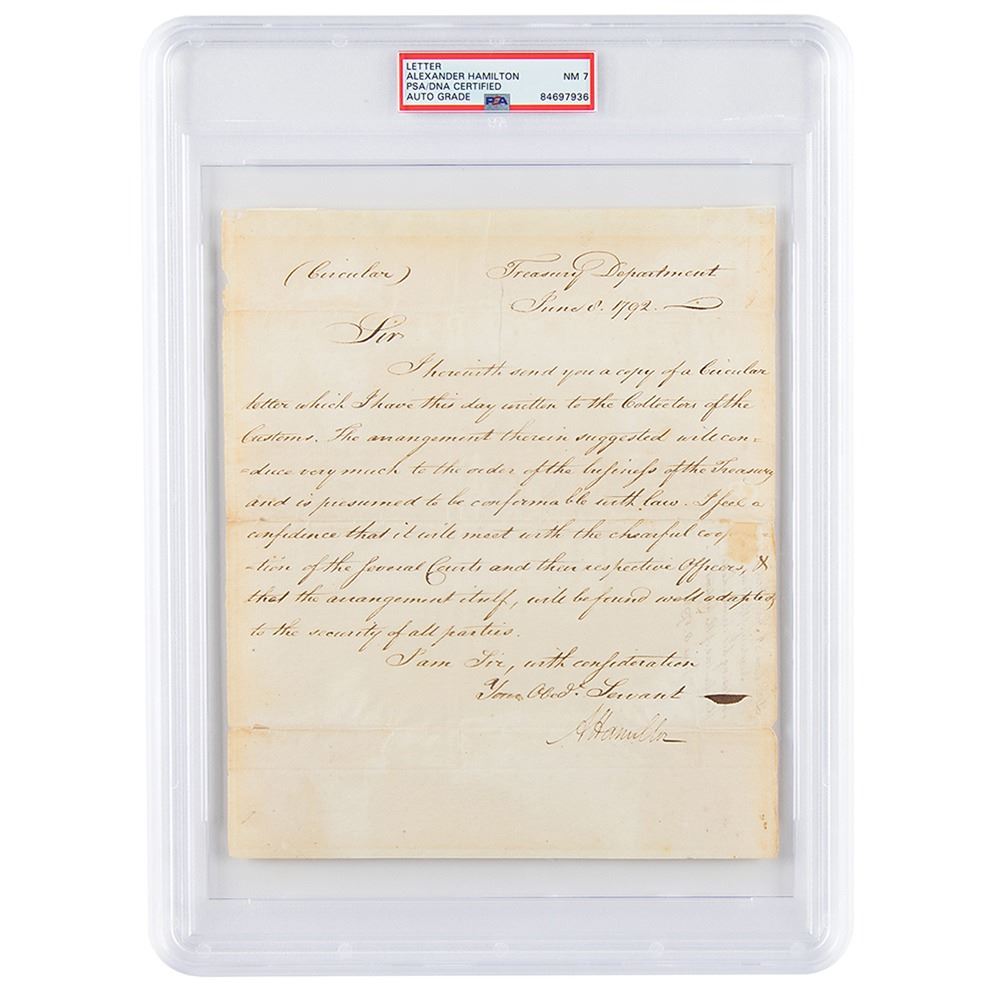 LETTER
ALEXANDER HAMILTON NM 7
PSA/DNA CERTIFIED
AUTO GRADE PSA 84697936
(Circular) Treasury Department
June 8. 1792.
Sir
I herewith send you a copy of a Circular
letter which I have this day written to the Collectors of the
Customs. The arrangement therein suggested will con=
=duce very much to the order of the business of the Treasury
and is presumed to be conformable with law. I feel a
confidence that it will meet with the chearful coop
=tion of the several Courts and their respective Officers, &
that the arrangement itself, will be found well adapted
to the security of all parties.
I am Sir, with consideration
Your Obedt. Servant
A Hamilton